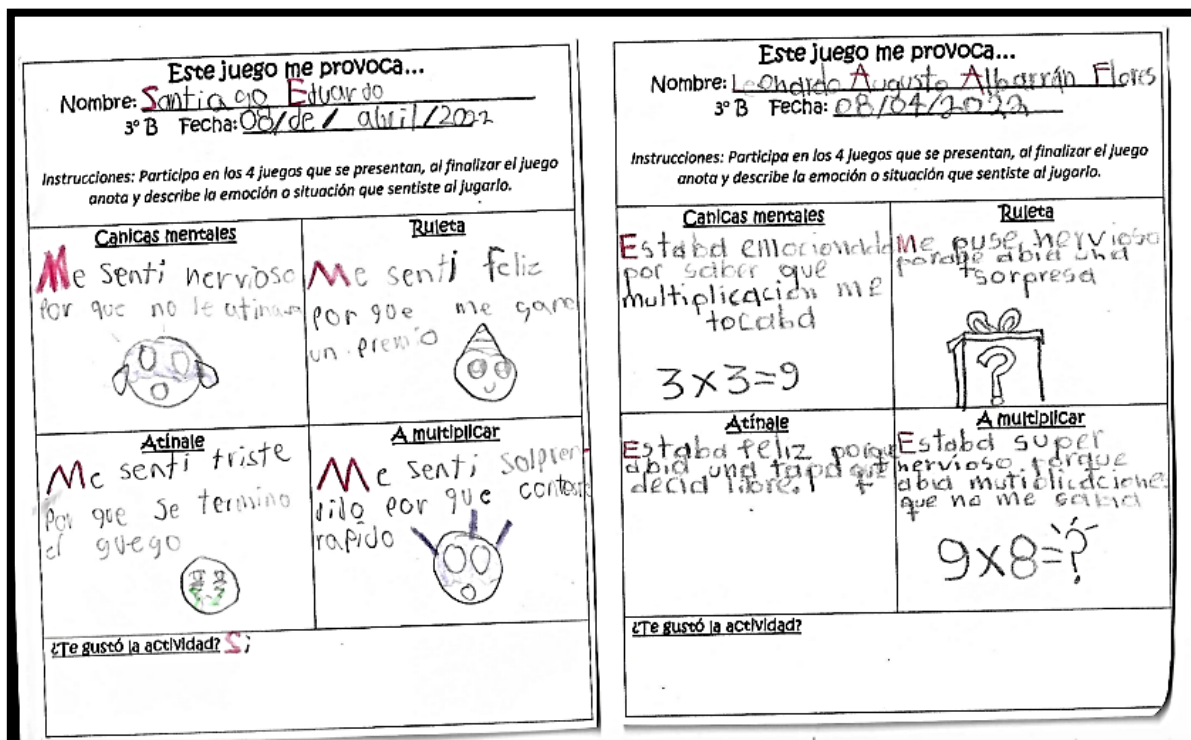 Este juego me provoca...
Nombre: Santiago Eduardo
3° B Fecha: 08/de/ abril/2022
Instrucciones: Participa en los 4 juegos que se presentan, al finalizar el juego
anota y describe la emoción o situación que sentiste al jugarlo.
Canicas mentales
Me senti nervioso
Por que no le atinara
Ruleta
Me senti feliz
por que me gane
un premio
Atínale
Me senti triste
Por que se termino
el guego
A multiplicar
Me senti solpren
dido por que conteste
rapido
¿Te gustó la actividad? Si
Este juego me provoca...
Nombre: Leonardo Augusto Albarrán Flores
3° B Fecha: 08/04/2022
Instrucciones: Participa en los 4 juegos que se presentan, al finalizar el juego
anota y describe la emoción o situación que sentiste al jugarlo.
Canicas mentales
Estaba emocionado
por saber que
multiplicación me
tocaba
3x3=9
Ruleta
Me puse nervioso
porque abia una
sorpresa
?
Atínale
Estaba feliz porque
abia una tapa
decia libre.
A multiplicar
Estaba super
nervioso porque
abia mutiplicaciones
que no me sabia
9x8=?
¿Te gustó la actividad?